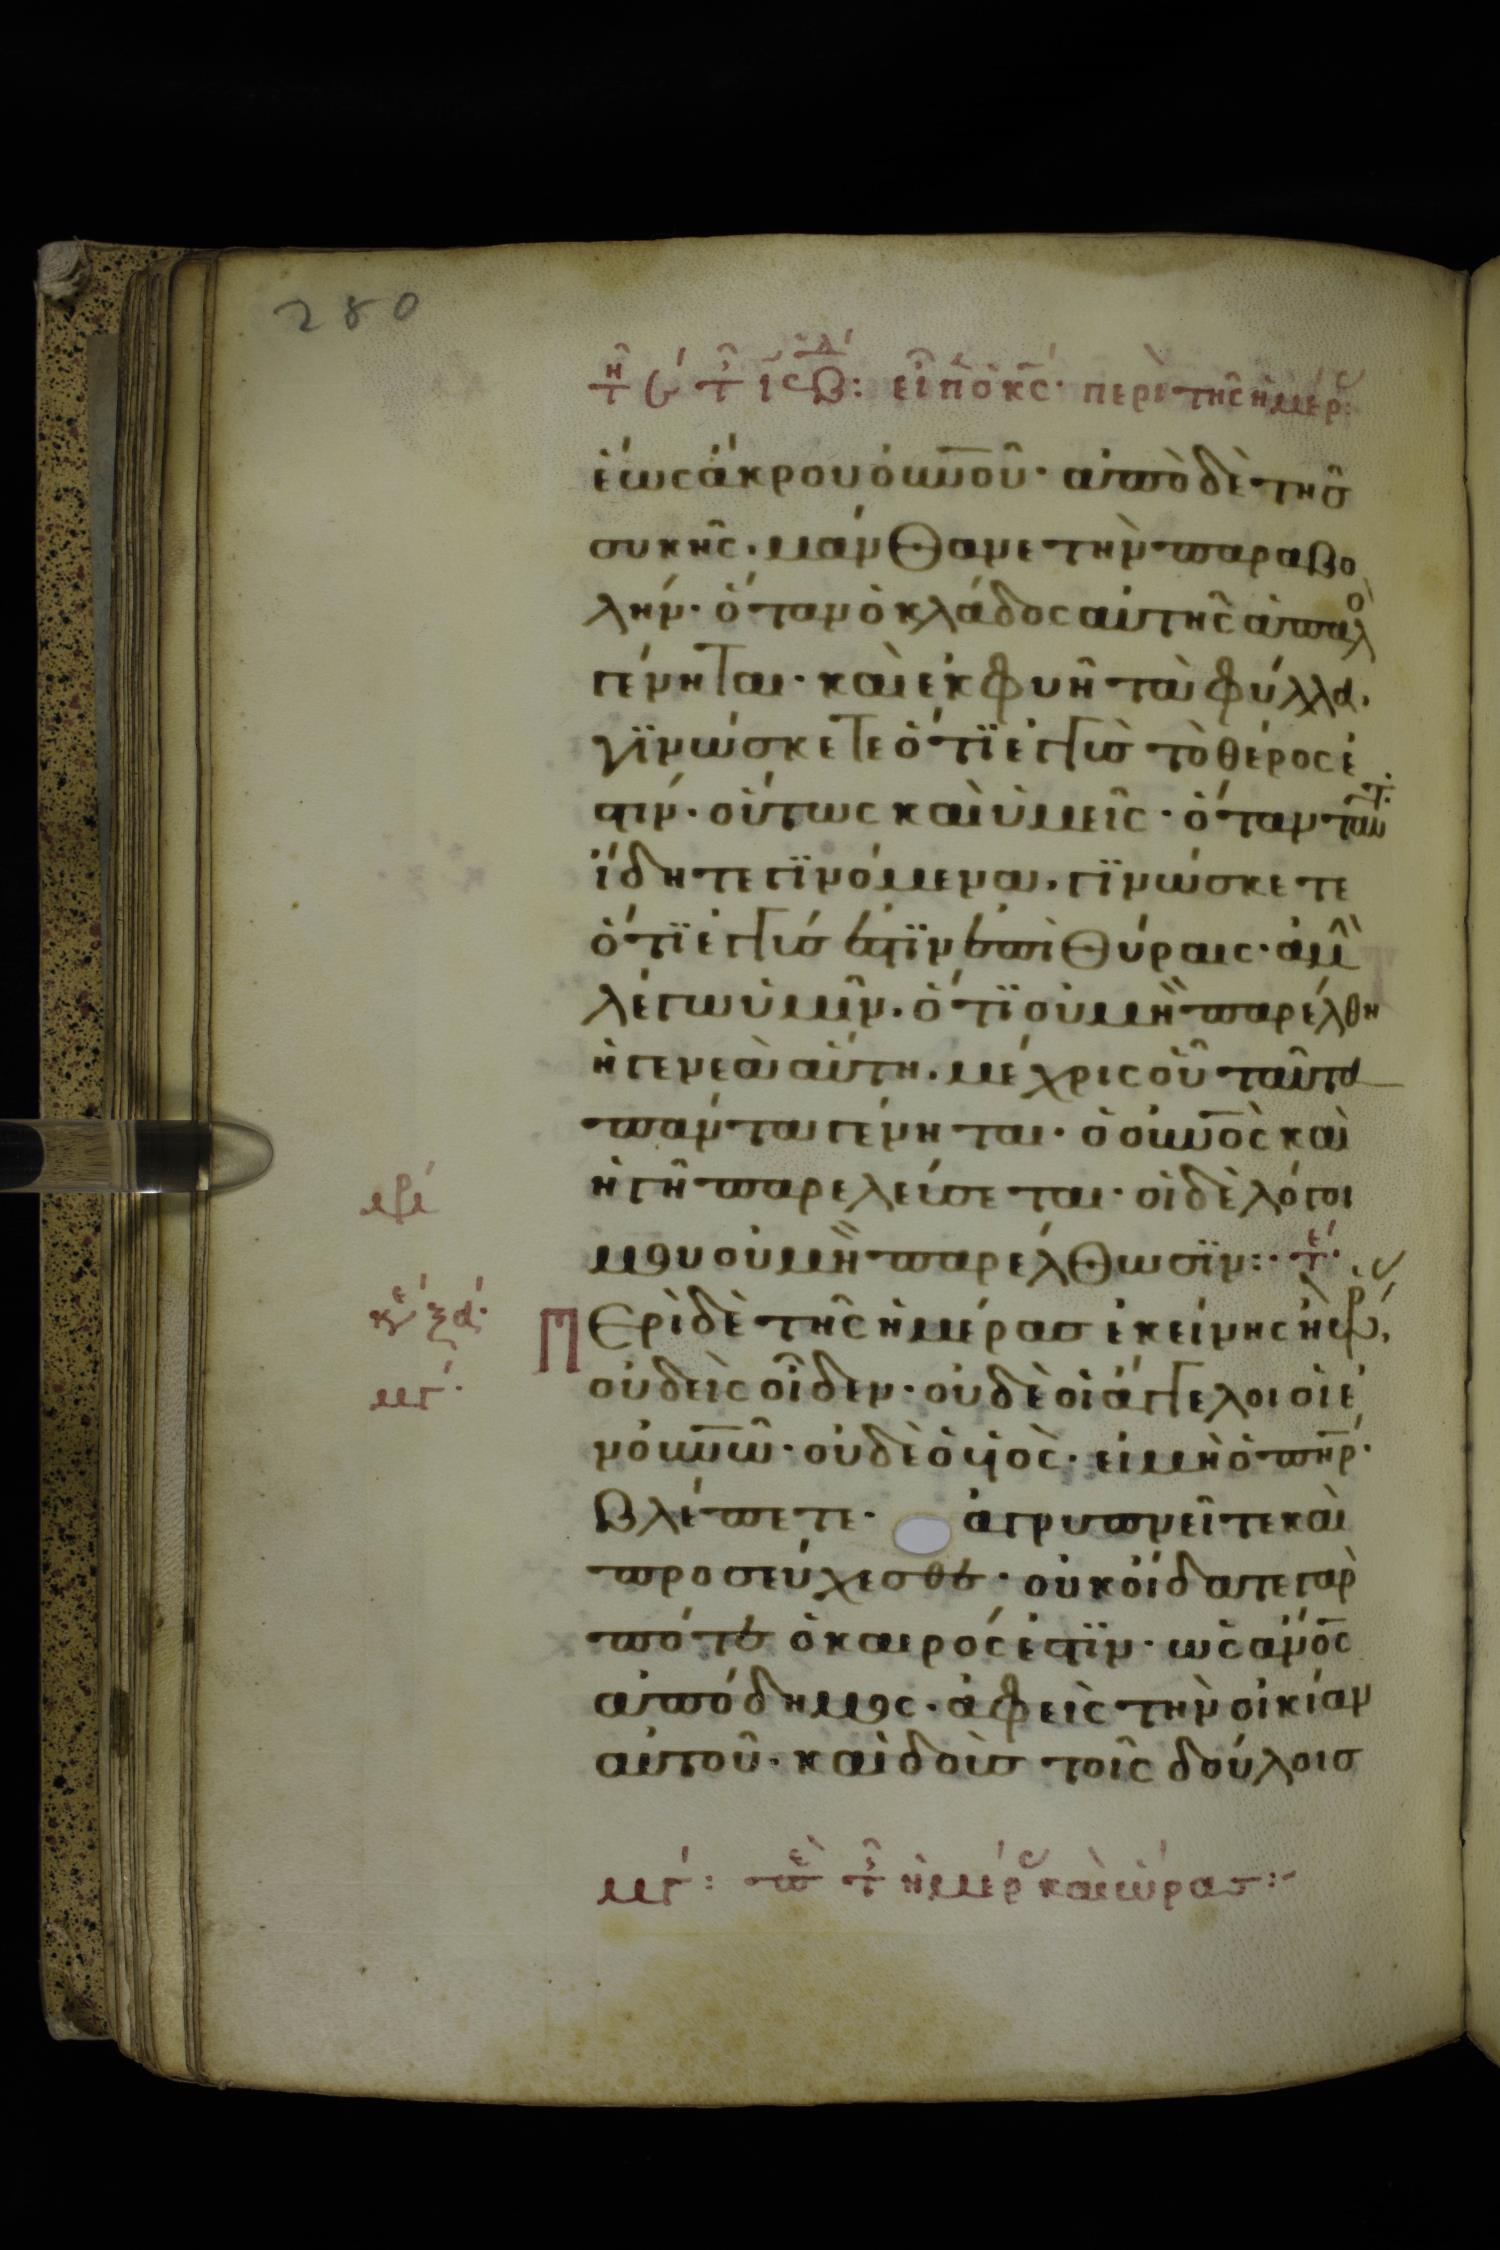 280
εἶπ ὁ κς· περὶ τῆς ἡμέρ:
ἕως ἄκρου οὐνοῦ· ἀπὸ δὲ τῆσ
συκῆς, μάνθανε τὴν παραβο
λήν· ὅταν ὁ κλάδος αὐτῆς ἁπαλὸ
γένηται· καὶ ἐκφυῆ τὰ φύλλα,
γϊνώσκετε ὅτϊ ἐγγὺσ τὸ θέρος ἐ
στιν· οὕτως καὶ ὑμεῖς· ὅταν ταῦτ
ἴδητε γϊνόμενα, γϊνώσκετε
ὅτϊ ἐγγύσ ἐστϊν ἐπὶ θύραις· ἀμὴ
λέγω ὑμῖν, ὅτϊ οὐ μὴ παρέλθη
ἡ γενεὰ αὕτη, μέχρις οὗ ταῦτα
πάντα γένηται· ὁ οὐνὸς καὶ
ἡ γῆ παρελεύσεται· οἱ δὲ λόγοι
μου οὐ μὴ παρέλθωσϊν:·
Περὶ δὲ τῆς ἡμέρασ ἐκείνης ἢ ὥρ,
οὐδεὶς οἶδεν· οὐδὲ οἱ ἄγγελοι οἱ ἐ
ν οὐνῶ· οὐδὲ ὁ υἱὸς· εἰ μὴ ὁ πηρ·
βλέπετε· ἀγρυπνεῖτε καὶ
προσεύχεσθε· οὐκ οἴδατε γὰρ
πότε ὁ καιρός ἐστϊν· ὡς ἄνος
ἀπόδημος· ἀφεὶς τὴν οἰκίαν
αὐτοῦ· καὶ δοὺσ τοῖς δούλοισ
μγ: πε τ ἡμέρ καὶ ὥρασ: